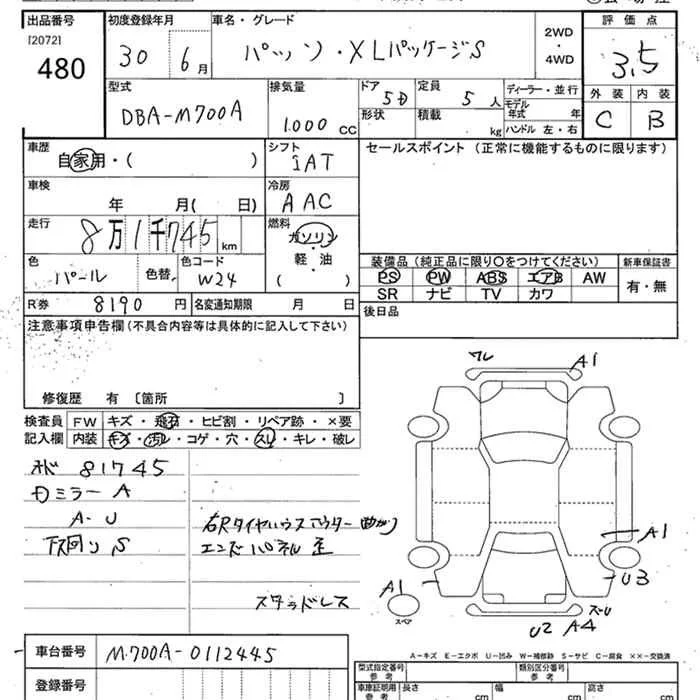 出品番号
[2072]
480
初度登録年月
30 6月
車名・グレード
パッソ・XLパッケージS
2WD
・
4WD
評価点
3.5
外装 内装
C B
型式
DBA-M700A
排気量
1000 CC
ドア
5D
形状
定員
5人
積載
kg
ディーラー・並行
モデル年式 年
ハンドル 左・右
車歴
自家用・( )
シフト
IAT
セールスポイント(正常に機能するものに限ります)
車検
年 月( 日)
冷房
AAC
走行
8万1千745km
燃料
ガソリン
軽・油
( )
色
パール
色替
色コード
W24
装備品(純正品に限り〇をつけてください) 新車保証書
PS PW ABS エアB AW
SR ナビ TV カワ
有・無
R券 8190円
名変通知期限 月 日
後日品
注意事項申告欄(不具合内容等は具体的に記入して下さい)
修復歴 有〔箇所 〕
検査員記入欄
FW キズ・飛石・ヒビ割・リペア跡・×要
内装 キズ・汚レ・コゲ・穴・スレ・キレ・破レ
81745
ミラーA
A-U
下回りS
右Rタイヤハウスアウター曲がり
エンドパネル歪
スタッドレス
ワレ
A1
A1
U3
A1
スペア
U2 A4
A-キズ E-エクボ U-凹み W-補修跡 S-サビ C-腐食 ××-交換済
車台番号
M700A-0112445
登録番号
型式指定番号
参考
類別区分番号
参考
車庫証明用
参考
長さ cm
幅 cm
高さ cm